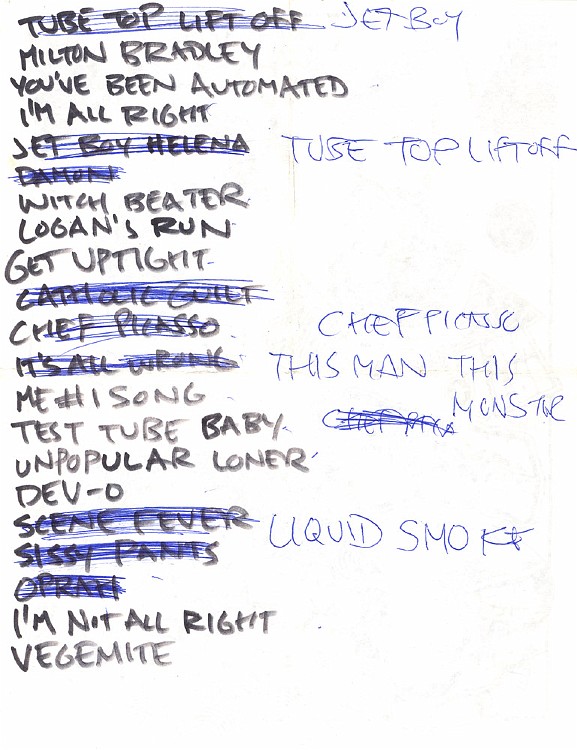 TUBE TOP LIFT OFF JET BOY
MILTON BRADLEY
YOU'VE BEEN AUTOMATED
I'M ALL RIGHT
JET BOY HELENA TUBE TOP LIFTOFF
DAMON
WITCH BEATER
LOGAN'S RUN
GET UPTIGHT
CATHOLIC GUILT
CHEF PICASSO CHEF PICASSO
IT'S ALL WRONG THIS MAN THIS
MONSTER
ME #1 SONG
TEST TUBE BABY CHEF
UNPOPULAR LONER
DEV-O
SCENE FEVER LIQUID SMOKE
SISSY PANTS
OPRAH
I'M NOT ALL RIGHT
VEGEMITE